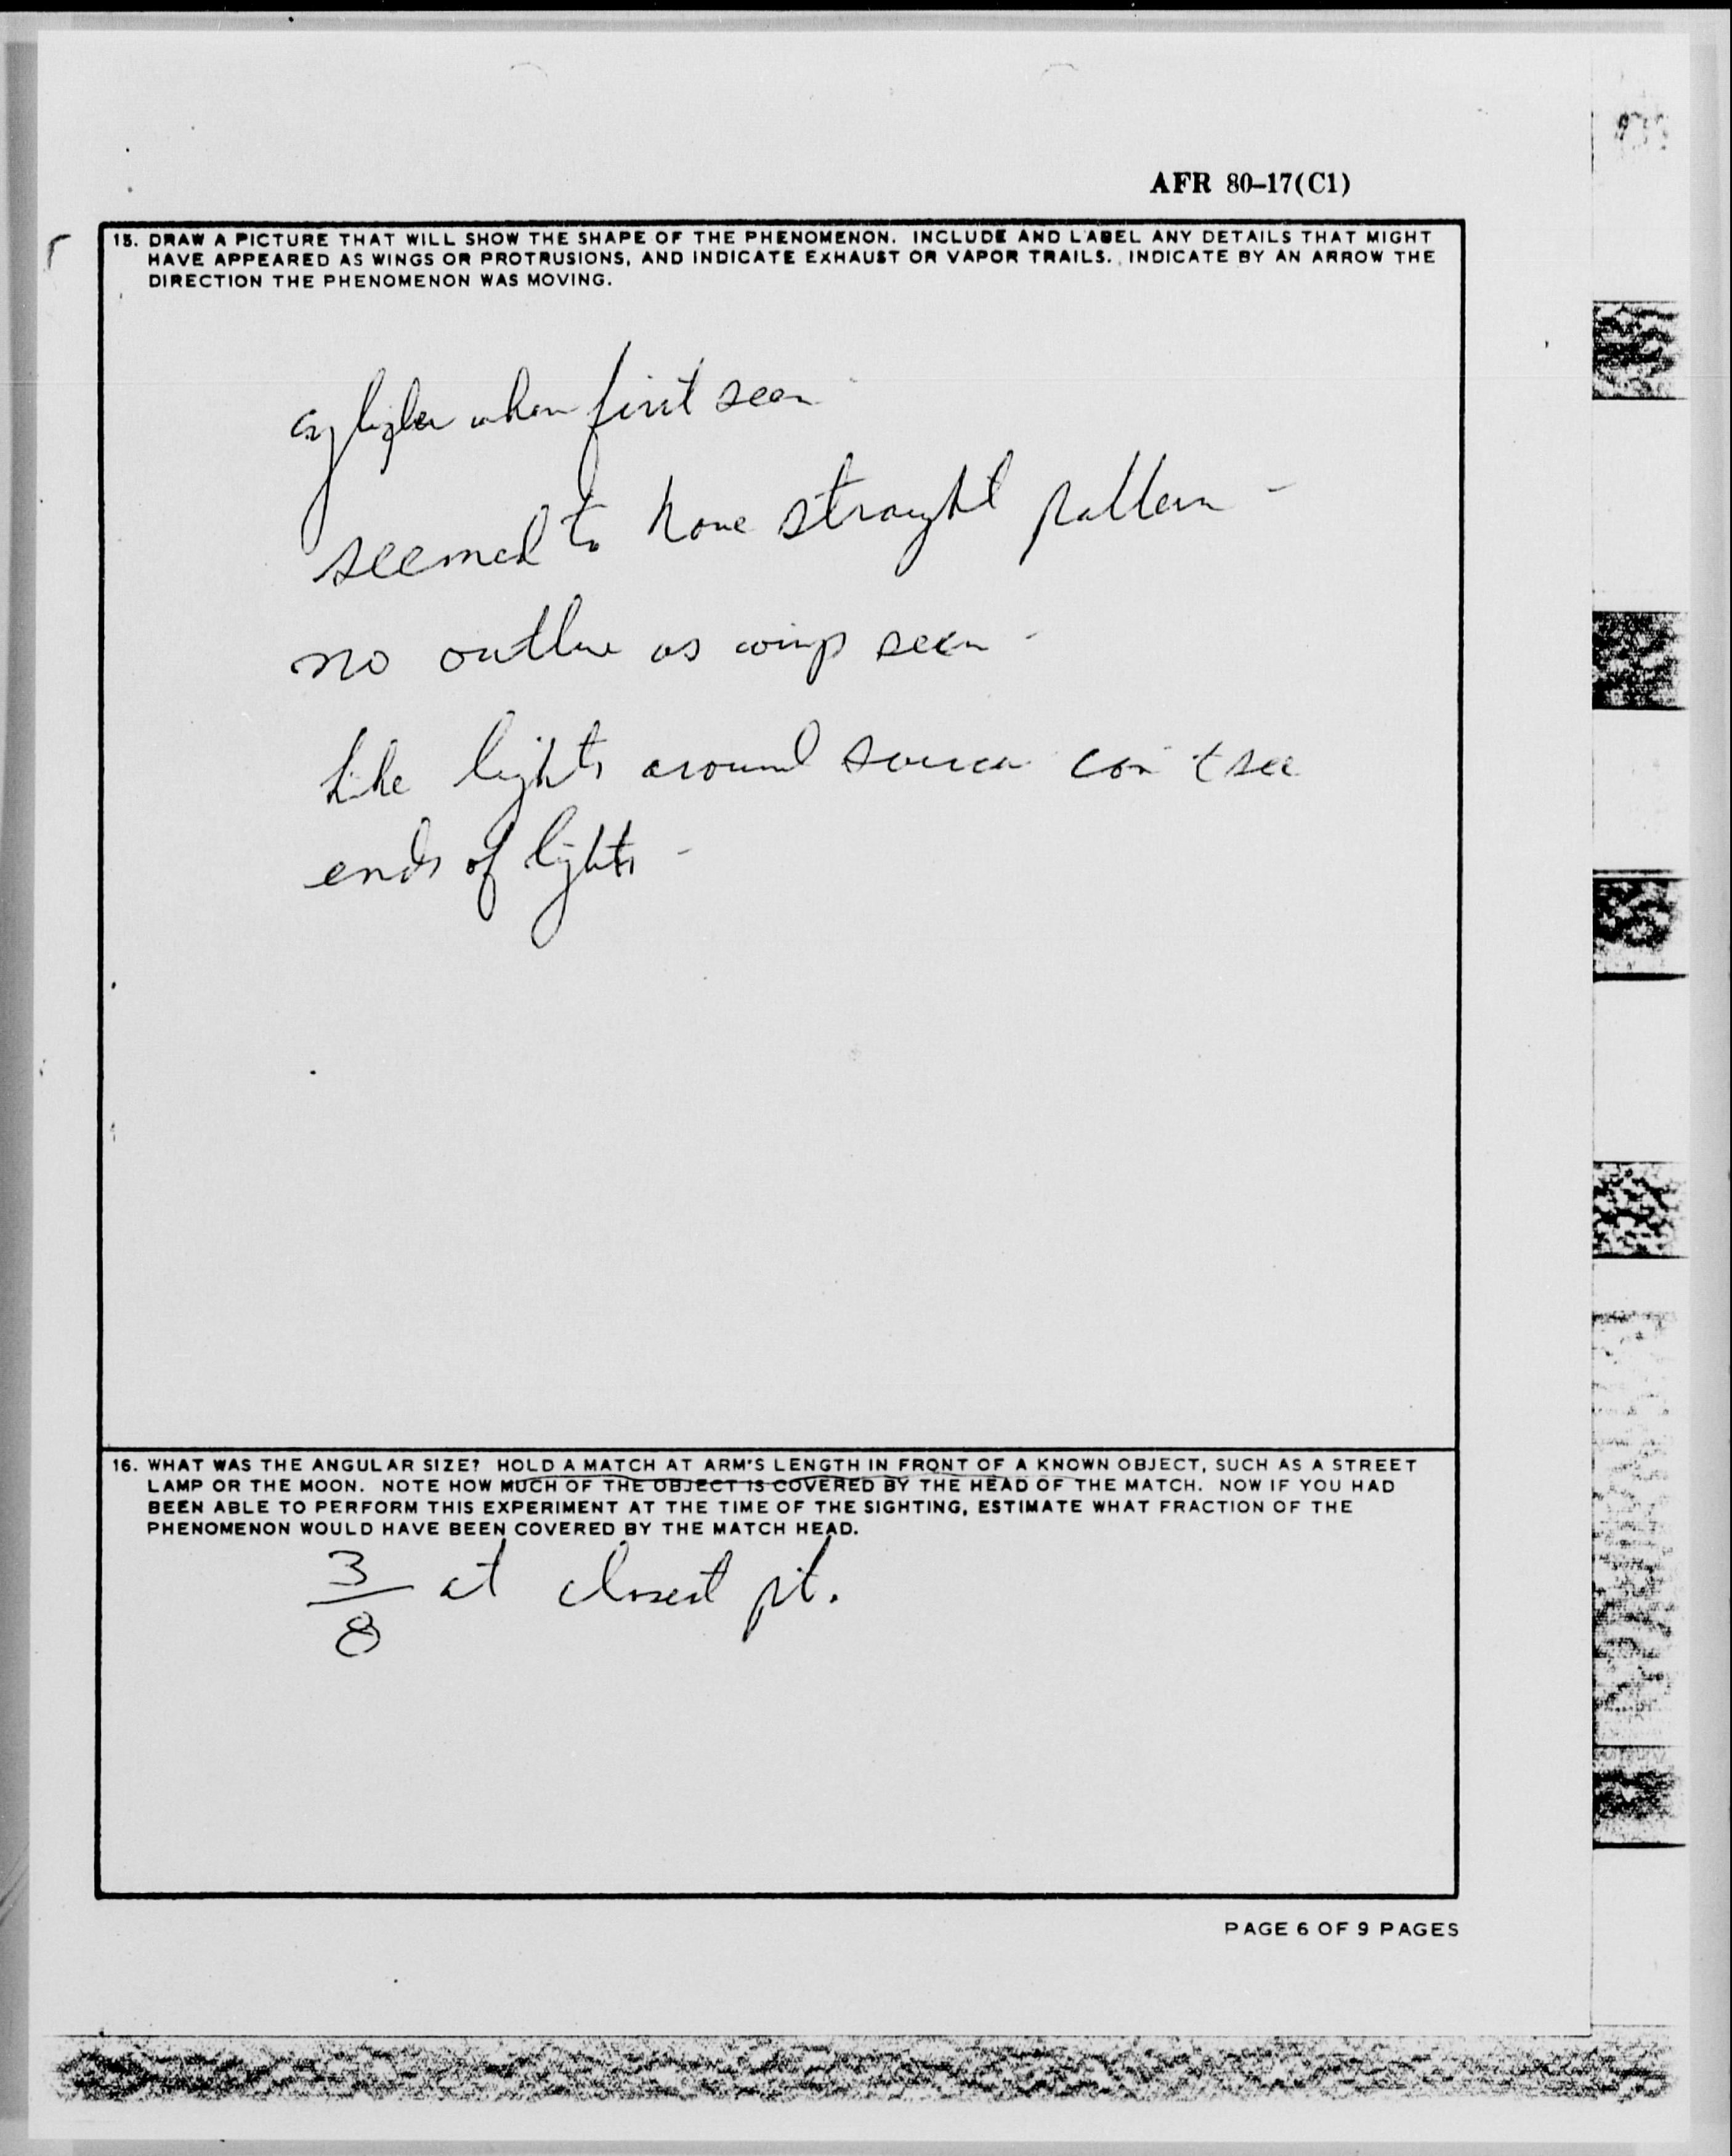 AFR 80-17(C1)
15. DRAW A PICTURE THAT WILL SHOW THE SHAPE OF THE PHENOMENON. INCLUDE AND LABEL ANY DETAILS THAT MIGHT
HAVE APPEARED AS WINGS OR PROTRUSIONS, AND INDICATE EXHAUST OR VAPOR TRAILS. INDICATE BY AN ARROW THE
DIRECTION THE PHENOMENON WAS MOVING.
when first seen
seemed to have straight pattern -
no outline as wings seen -
like lights around source can't see
ends of lights -
16. WHAT WAS THE ANGULAR SIZE? HOLD A MATCH AT ARM'S LENGTH IN FRONT OF A KNOWN OBJECT, SUCH AS A STREET
LAMP OR THE MOON. NOTE HOW MUCH OF THE OBJECT IS COVERED BY THE HEAD OF THE MATCH. NOW IF YOU HAD
BEEN ABLE TO PERFORM THIS EXPERIMENT AT THE TIME OF THE SIGHTING, ESTIMATE WHAT FRACTION OF THE
PHENOMENON WOULD HAVE BEEN COVERED BY THE MATCH HEAD.
3/8 at closest pt.
PAGE 6 OF 9 PAGES